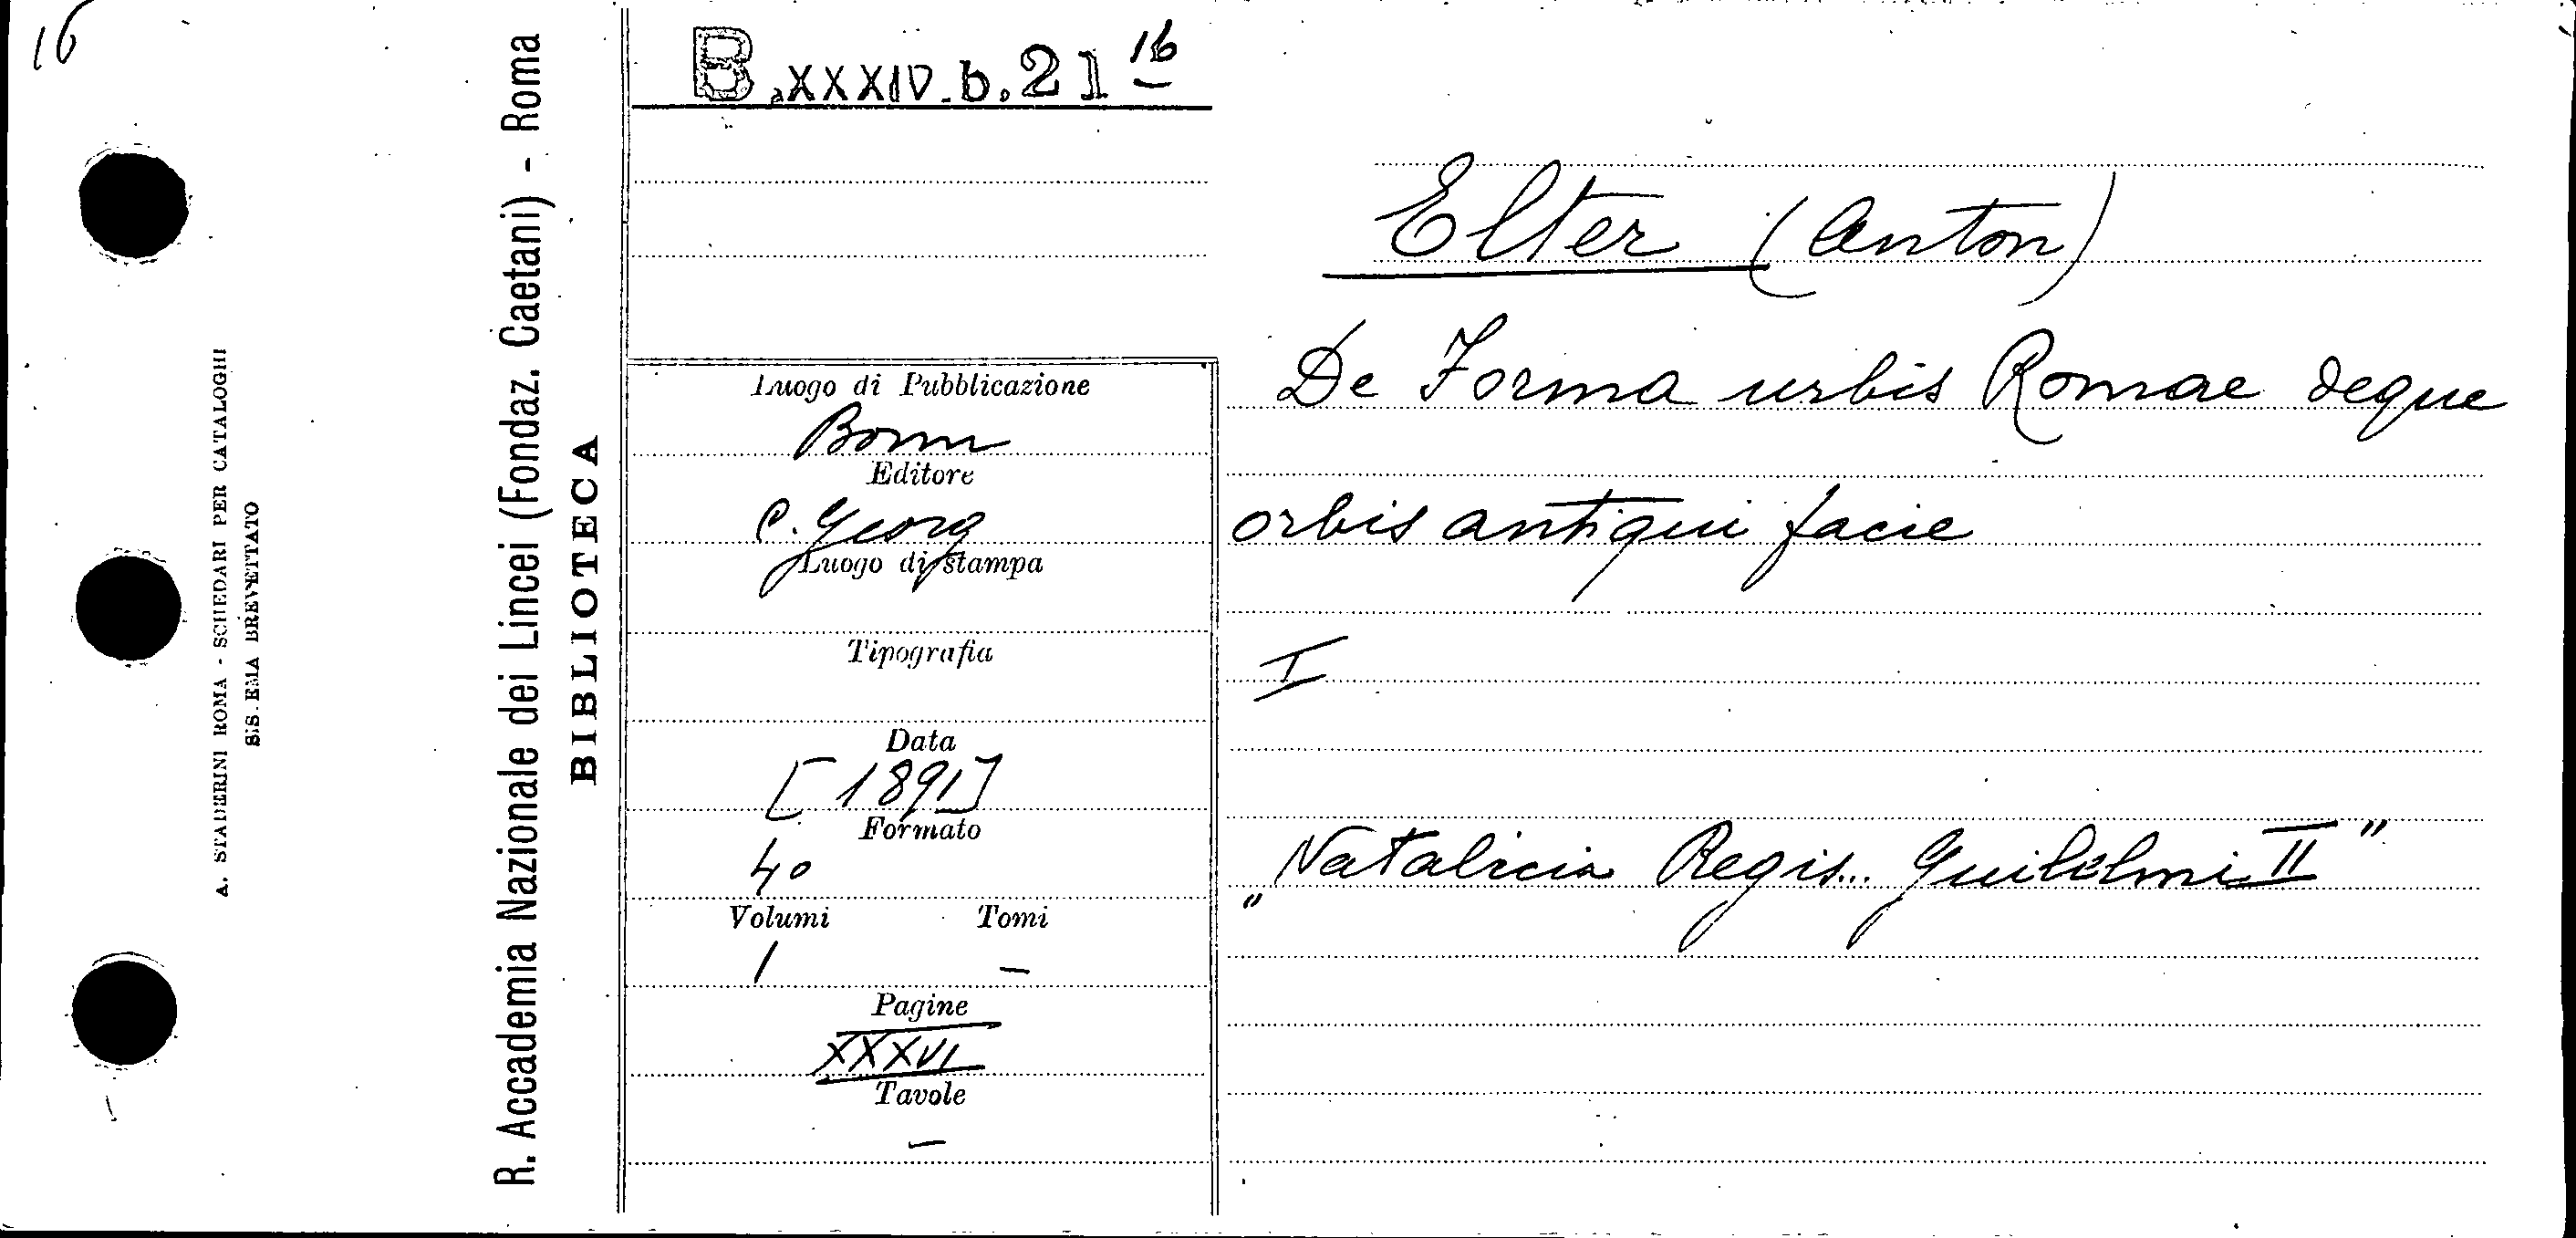 16
A. STADERINI ROMA - SCHEDARI PER CATALOGHI
SISTEMA BREVETTATO
R. Accademia Nazionale dei Lincei (Fondaz. Caetani) - Roma
BIBLIOTECA
B.XXXIV.b.21 16
Luogo di Pubblicazione
Bonn
Editore
C. Georg
Luogo di stampa
Tipografia
Data
[1891]
Formato
4º
Volumi Tomi
1 —
Pagine
XXXVI
Tavole
—
Elter (Anton)
De Forma urbis Romae deque
orbis antiqui facie
I
„Natalicia Regis... Guilelmi II"